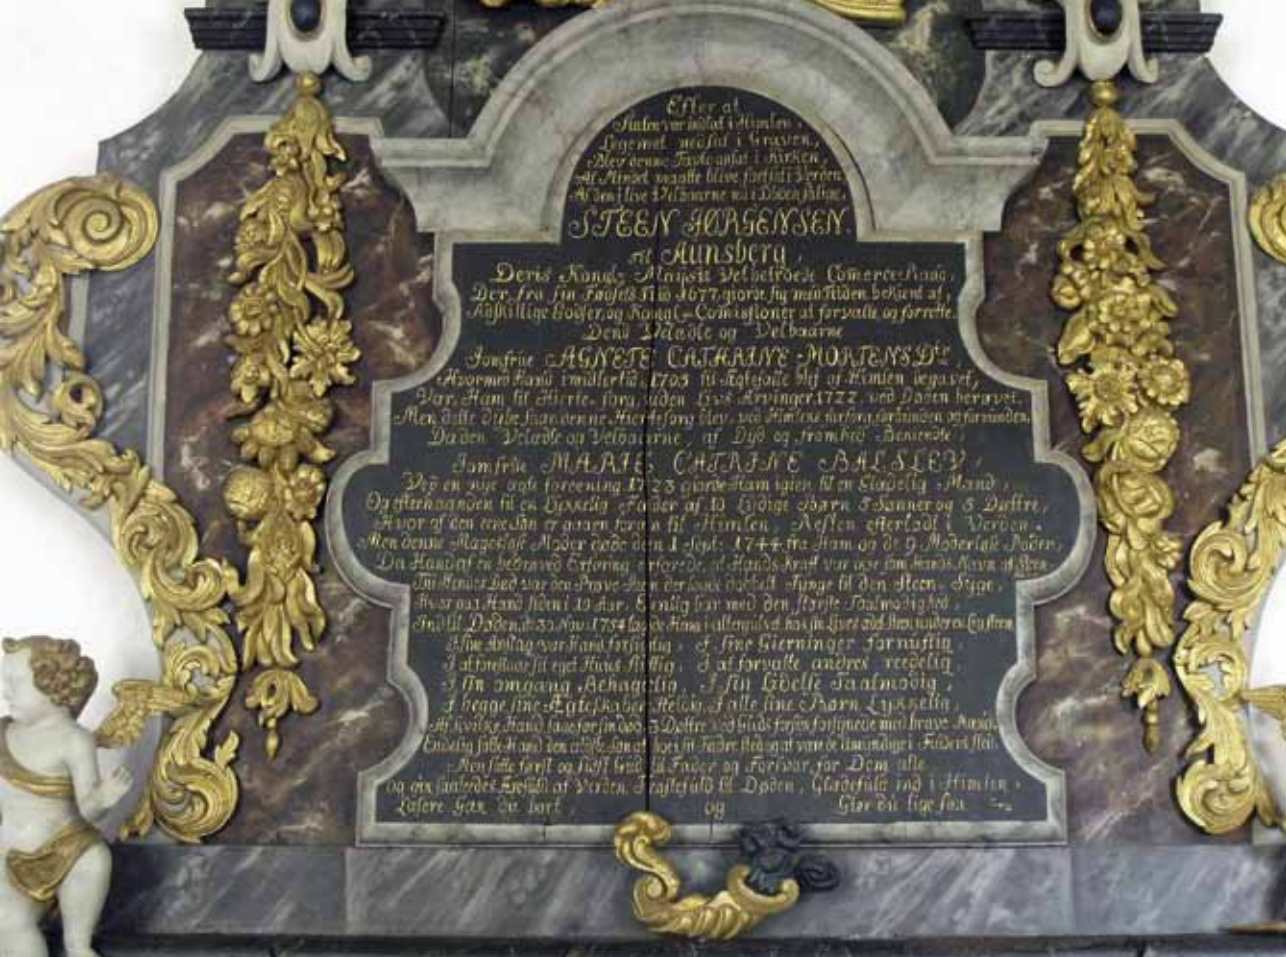 Efter at
Siælen var indlat i Himlen,
Legemet nedsat i Graven,
Blev denne Tavle opsat i Kirken,
At Mindet maatte blive fortsat i Verden
Af den i live Velbaarne nu i Døden Salige
STEEN JØRGENSEN.
til Aunsberg,
Deris Kongl: Mayists Velbetroede Comerce Raad,
Der, fra sin Fødsels Tiid 1677, giorde sig med Tiden bekient af,
Adskillige Godser, og Kongl: Comissioner at forvalte og forrette.
Dend Velædle og Velbaarne
Jomfrue AGNETE CATHRINE MORTENSDtr
Hvormed Hand imidlertid, 1705 til Ægtefælle blef af Himlen begavet,
Var Ham til Hierte-sorg, uden Livs Arvinger, 1722, ved Døden berøvet,
Men dette dybe Saar denne Hiertesorg blev, ved Himlens forsorg, forbunden og forvunden.
Da den Velædle og Velbaarne, af Dyd og fromhed Beniendte,
Jomfrue MARIE CATRINE BALSLEV,
Ved en nye ægte foreening 1723 giorde Ham igien til en Gladelig Mand,
Og efterhaanden til en Lykkelig Fader af 10 Lydige Børn 5 Sønner og 5 Døttre,
Hvor af den eene Søn er gaaen foran til Himlen, Resten efterladt i Verden.
Men denne Mageløse Moder døde den 1 Sept: 1744 fra Ham og de 9 Moderløse Poder,
Da Hand af en bedrøved Erfaring erfarede, at Hands kraft var icke som Hands Navn af Steen
Thi Hendes Død var den Prøve Steen der lagde dobbelt Tynge til den Steen Syge,
Hvor paa Hand siden i 10 Aar. Eenlig bar med den største Taalmodighed,
Indtil Døden d: 30 Nov: 1754
I sine Anslag var Hand forsigtig, I sine Gierninger fornuftig,
I at forestaae sit eget Huus flittig, I at forvalte andres reedelig,
I sin omgang Behagelig, I sin Lidelse Taalmodig,
I begge sine Ægteskaber Heldig, I alle sine Børn Lykkelig,
Af hvilke Hand, lave for sin død, 3 Døttre ved Guds forsyn forsynede med brave Mænd
Endelig satte Hand den ældste Søn af i sin Faders sted og at være de umyndige i Faders sted.
Men satte først og sidst Gud til Fader og Forsvar for Dem alle
og gik saaledes Frefuld af Verden, Trøstefuld til Døden, Glædefuld ind i Himlen.
Læsere Gak du bort, og Giør du lige saa